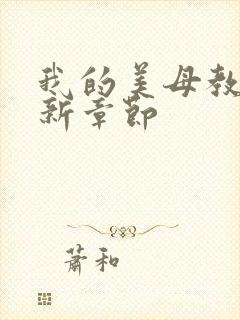 我的美母教
新章节
萧和